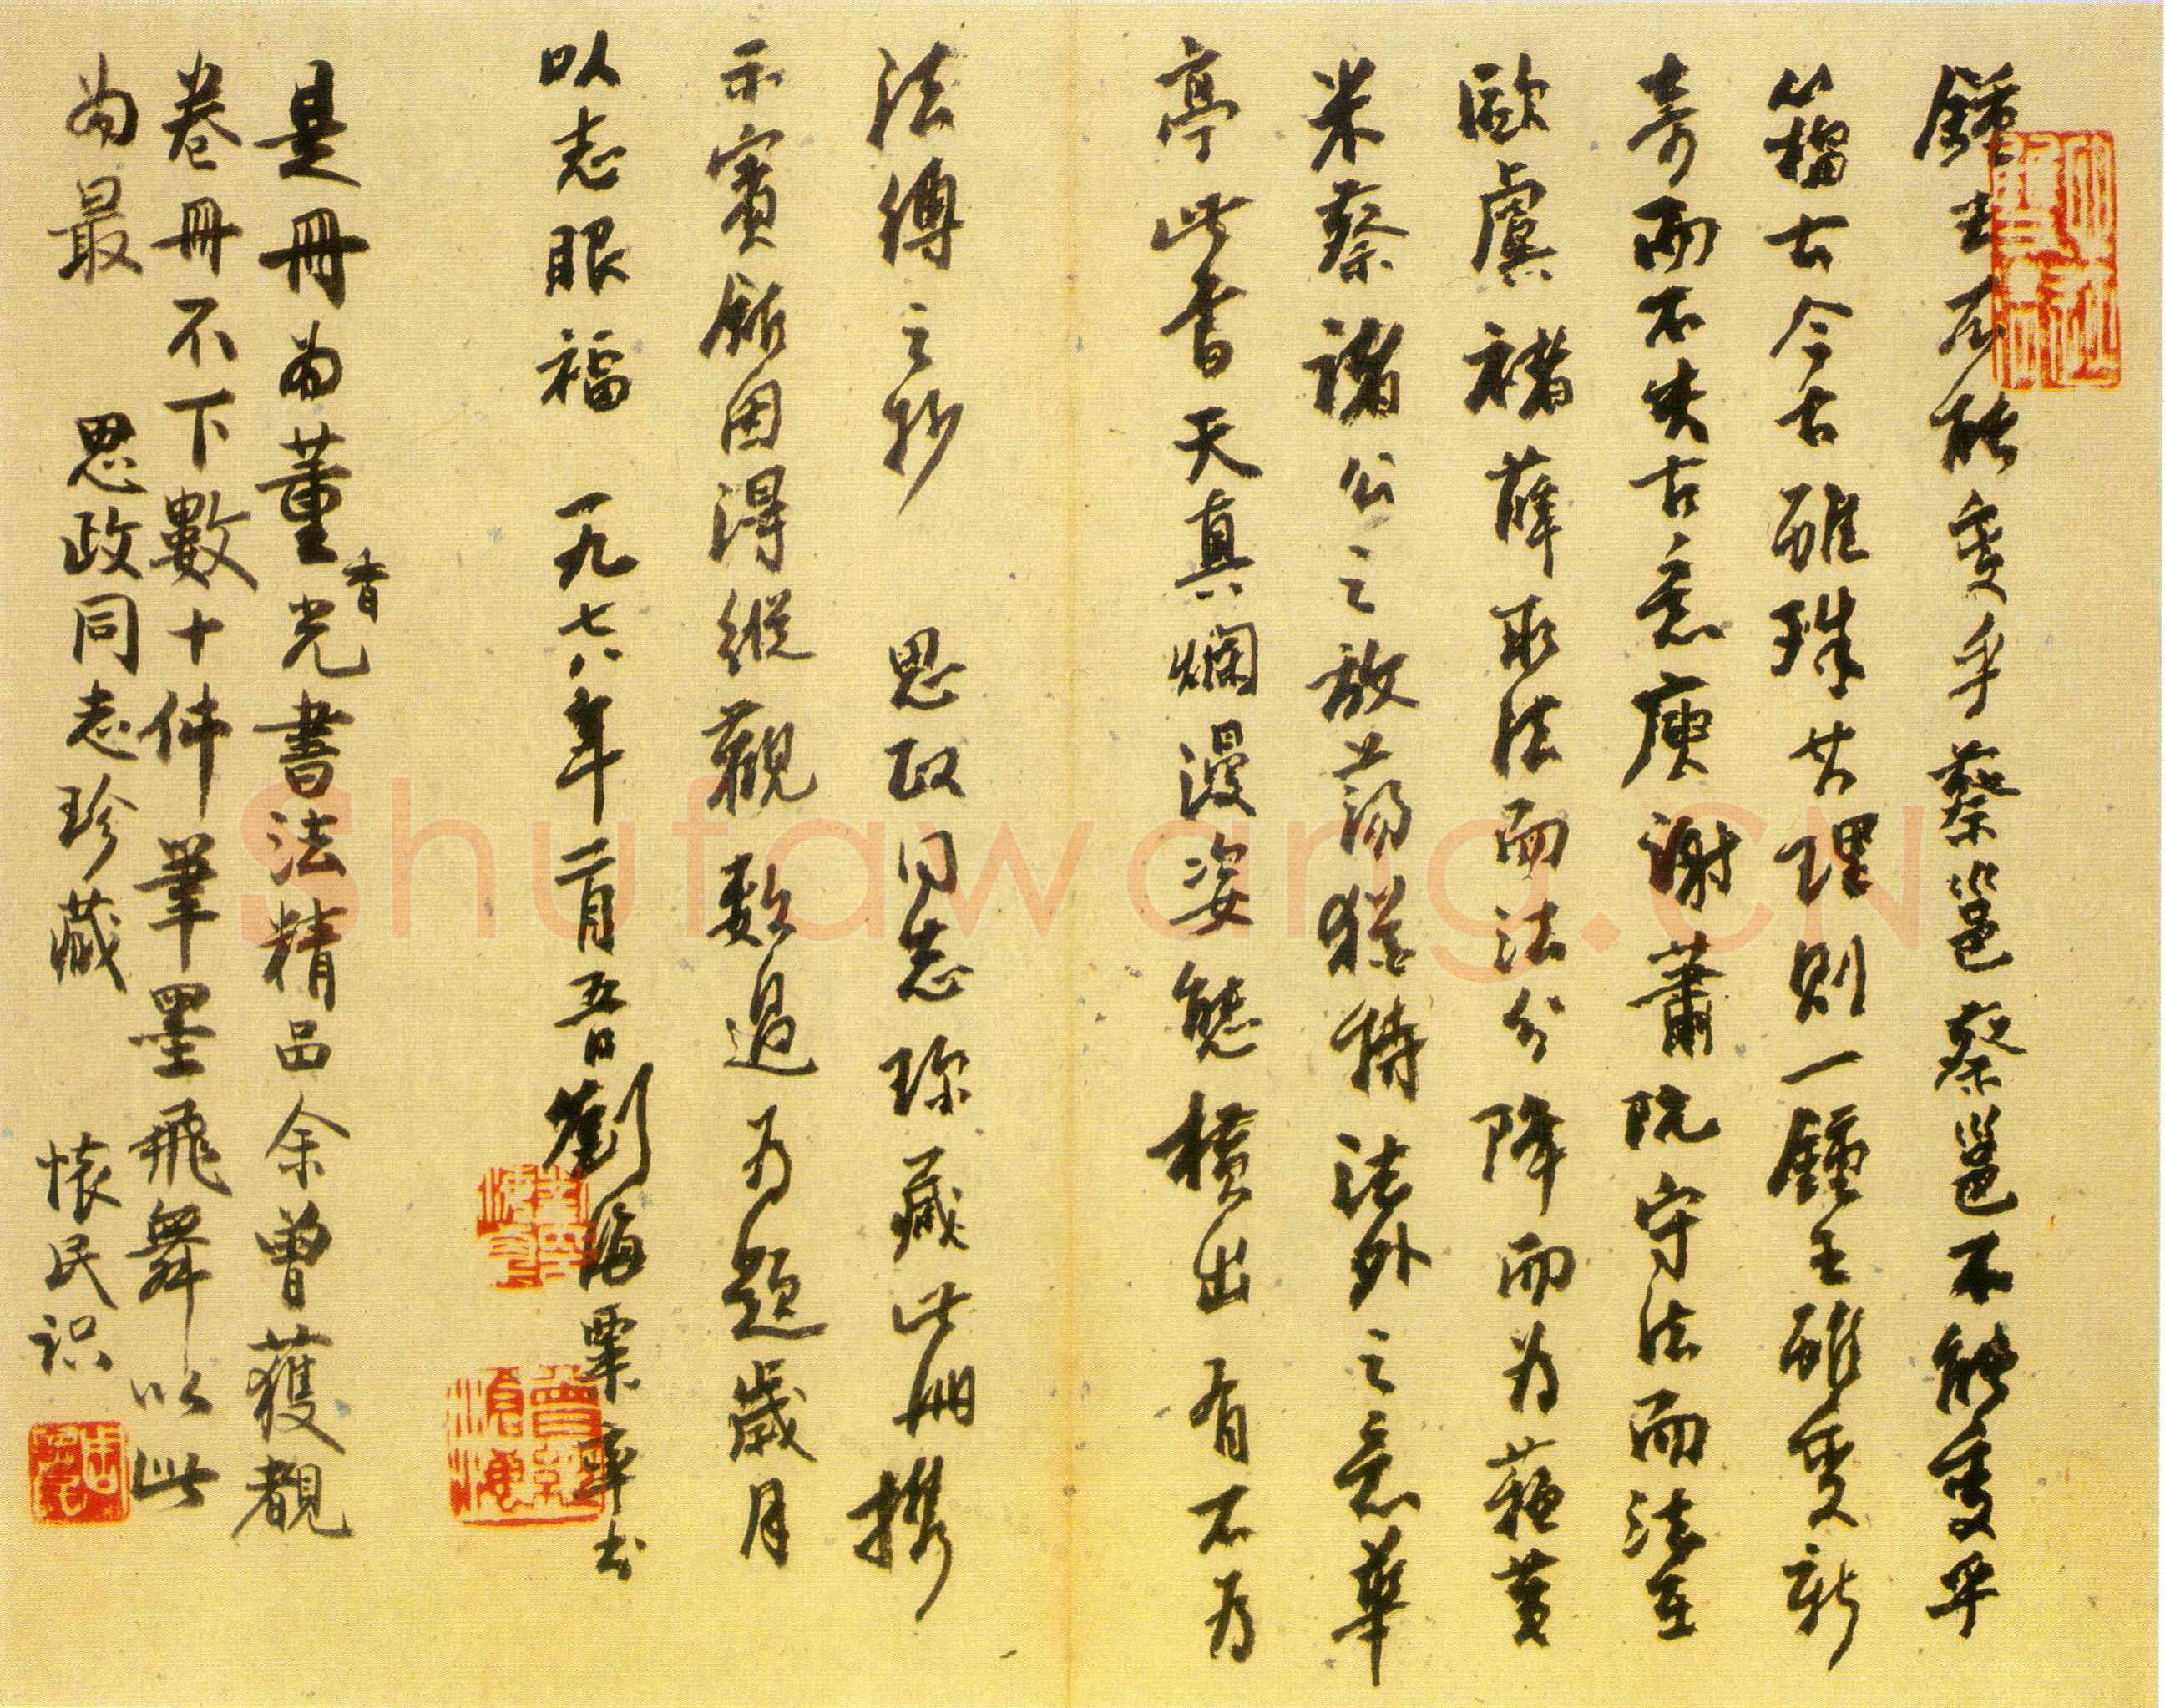 鍾王不能變乎蔡邕蔡邕不能變乎
籀古今古雖殊其理則一鍾王雖變新
奇而不失古意庾謝蕭阮守法而法在
歐虞褚薛取法而法分降而為蘇黄
米蔡諸公之放蕩猶持法外之意華
亭此書天真爛漫姿態橫出有不为
法縛之妙 思政同志珎藏此册携
示賓館因得縱觀數過为題歲月
以志眼福 一九七八年二月五日劉海粟率书
是冊为董香光書法精品余曾獲覩
卷冊不下數十件筆墨飛舞以此
为最 思政同志珍藏 懷民识
Shufawang.CN